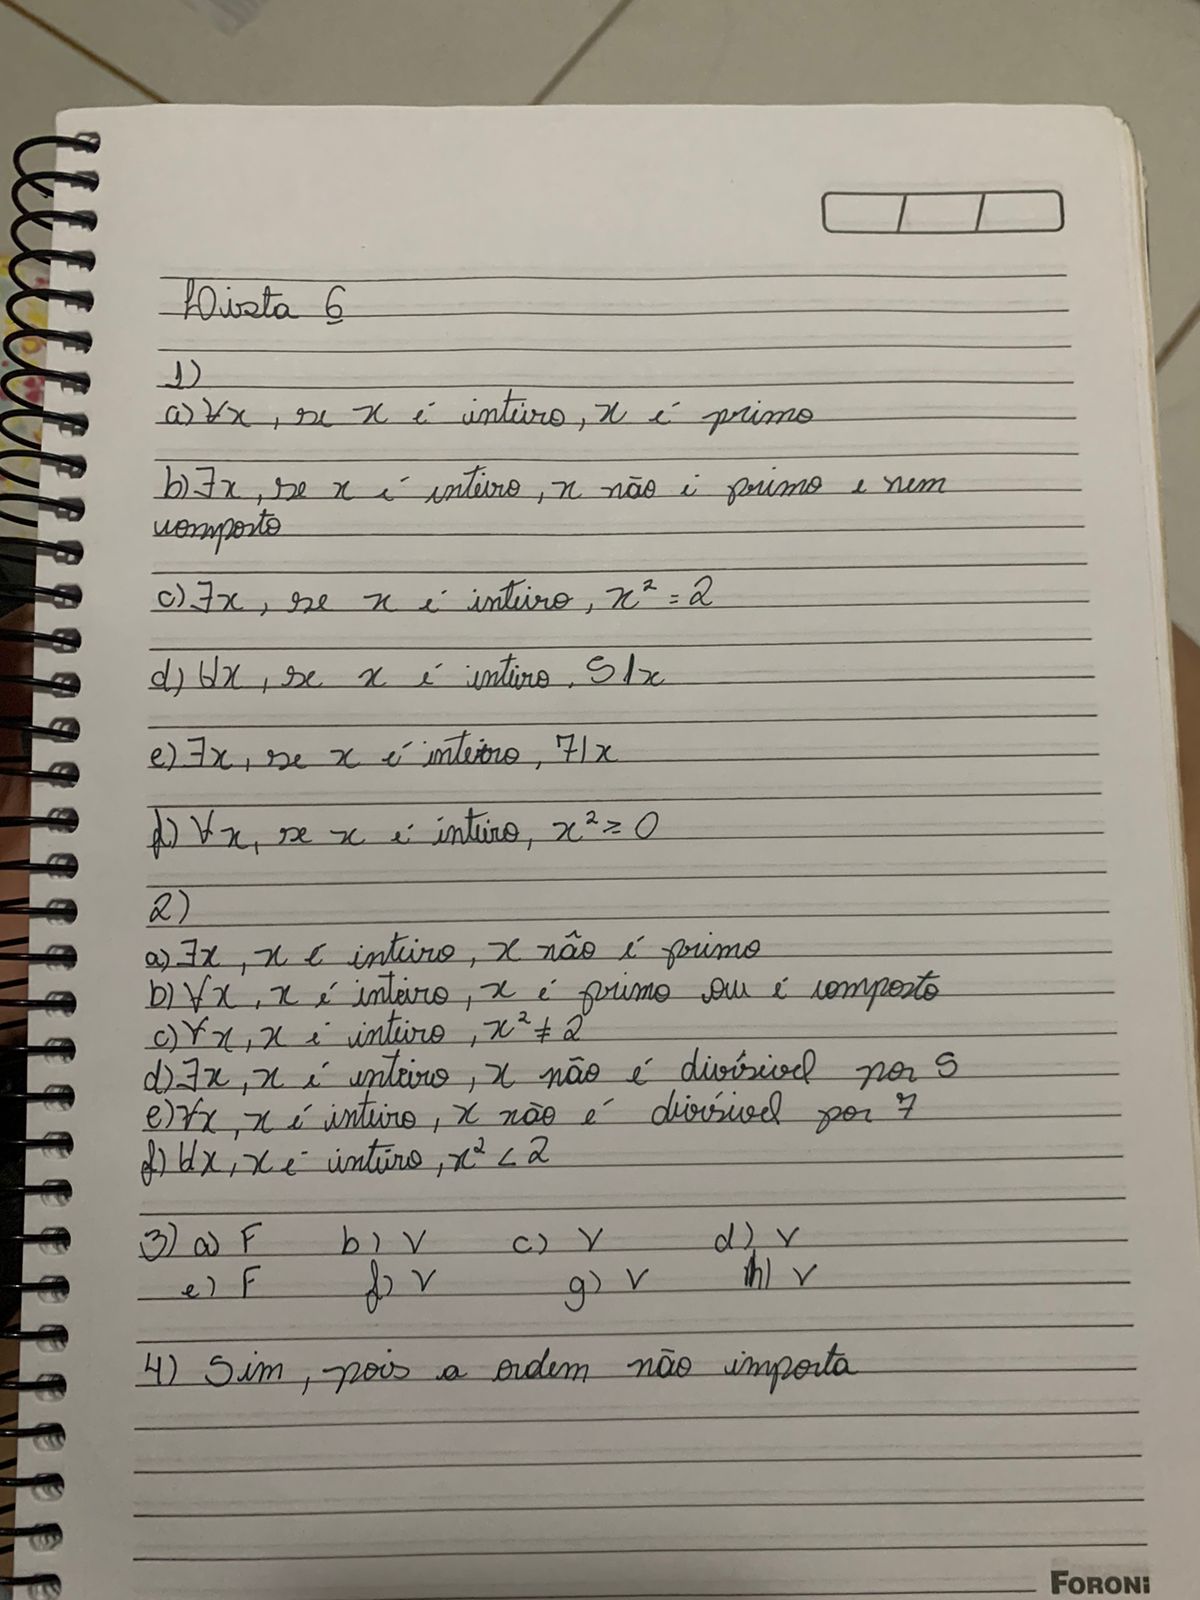 Lista 6
1)
a) ∀x, se x é inteiro, x é primo
b) ∃x, se x é inteiro, x não é primo e nem
composto
c) ∃x, se x é inteiro, x² = 2
d) ∀x, se x é inteiro, 5|x
e) ∃x, se x é inteiro, 7|x
f) ∀x, se x é inteiro, x² ≥ 0
2)
a) ∃x, x é inteiro, x não é primo
b) ∀x, x é inteiro, x é primo ou é composto
c) ∀x, x é inteiro, x² ≠ 2
d) ∃x, x é inteiro, x não é divísivel por 5
e) ∀x, x é inteiro, x não é divísivel por 7
f) ∀x, x é inteiro, x² < 2
3) a) F b) V c) V d) V
e) F f) V g) V h) V
4) Sim, pois a ordem não importa
FORONI